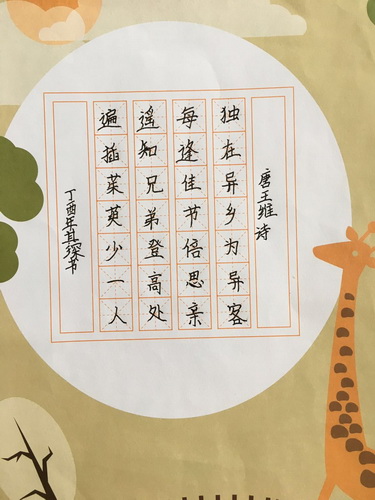 唐王维诗
独在异乡为异客
每逢佳节倍思亲
遥知兄弟登高处
遍插茱萸少一人
丁酉年其琛书